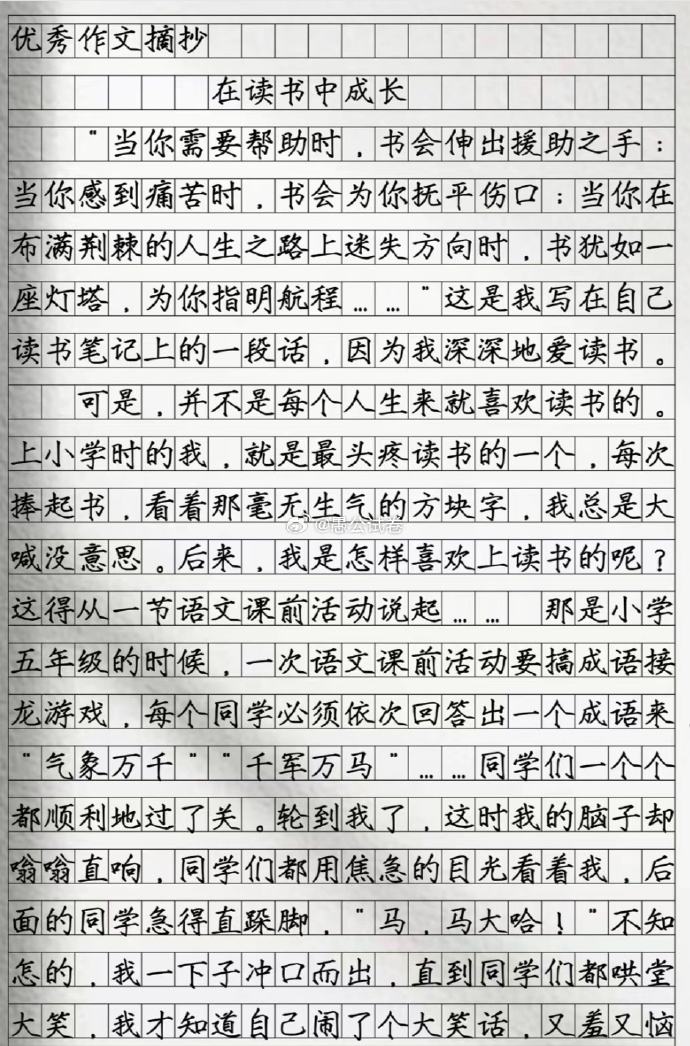 优秀作文摘抄
在读书中成长
"当你需要帮助时，书会伸出援助之手：
当你感到痛苦时，书会为你抚平伤口：当你在
布满荆棘的人生之路上迷失方向时，书犹如一
座灯塔，为你指明航程……"这是我写在自己
读书笔记上的一段话，因为我深深地爱读书。
可是，并不是每个人生来就喜欢读书的。
上小学时的我，就是最头疼读书的一个，每次
捧起书，看着那毫无生气的方块字，我总是大
@愚公试卷
喊没意思。后来，我是怎样喜欢上读书的呢？
这得从一节语文课前活动说起…… 那是小学
五年级的时候，一次语文课前活动要搞成语接
龙游戏，每个同学必须依次回答出一个成语来
"气象万千""千军万马"……同学们一个个
都顺利地过了关。轮到我了，这时我的脑子却
嗡嗡直响，同学们都用焦急的目光看着我，后
面的同学急得直跺脚，"马，马大哈！"不知
怎的，我一下子冲口而出，直到同学们都哄堂
大笑，我才知道自己闹了个大笑话，又羞又恼